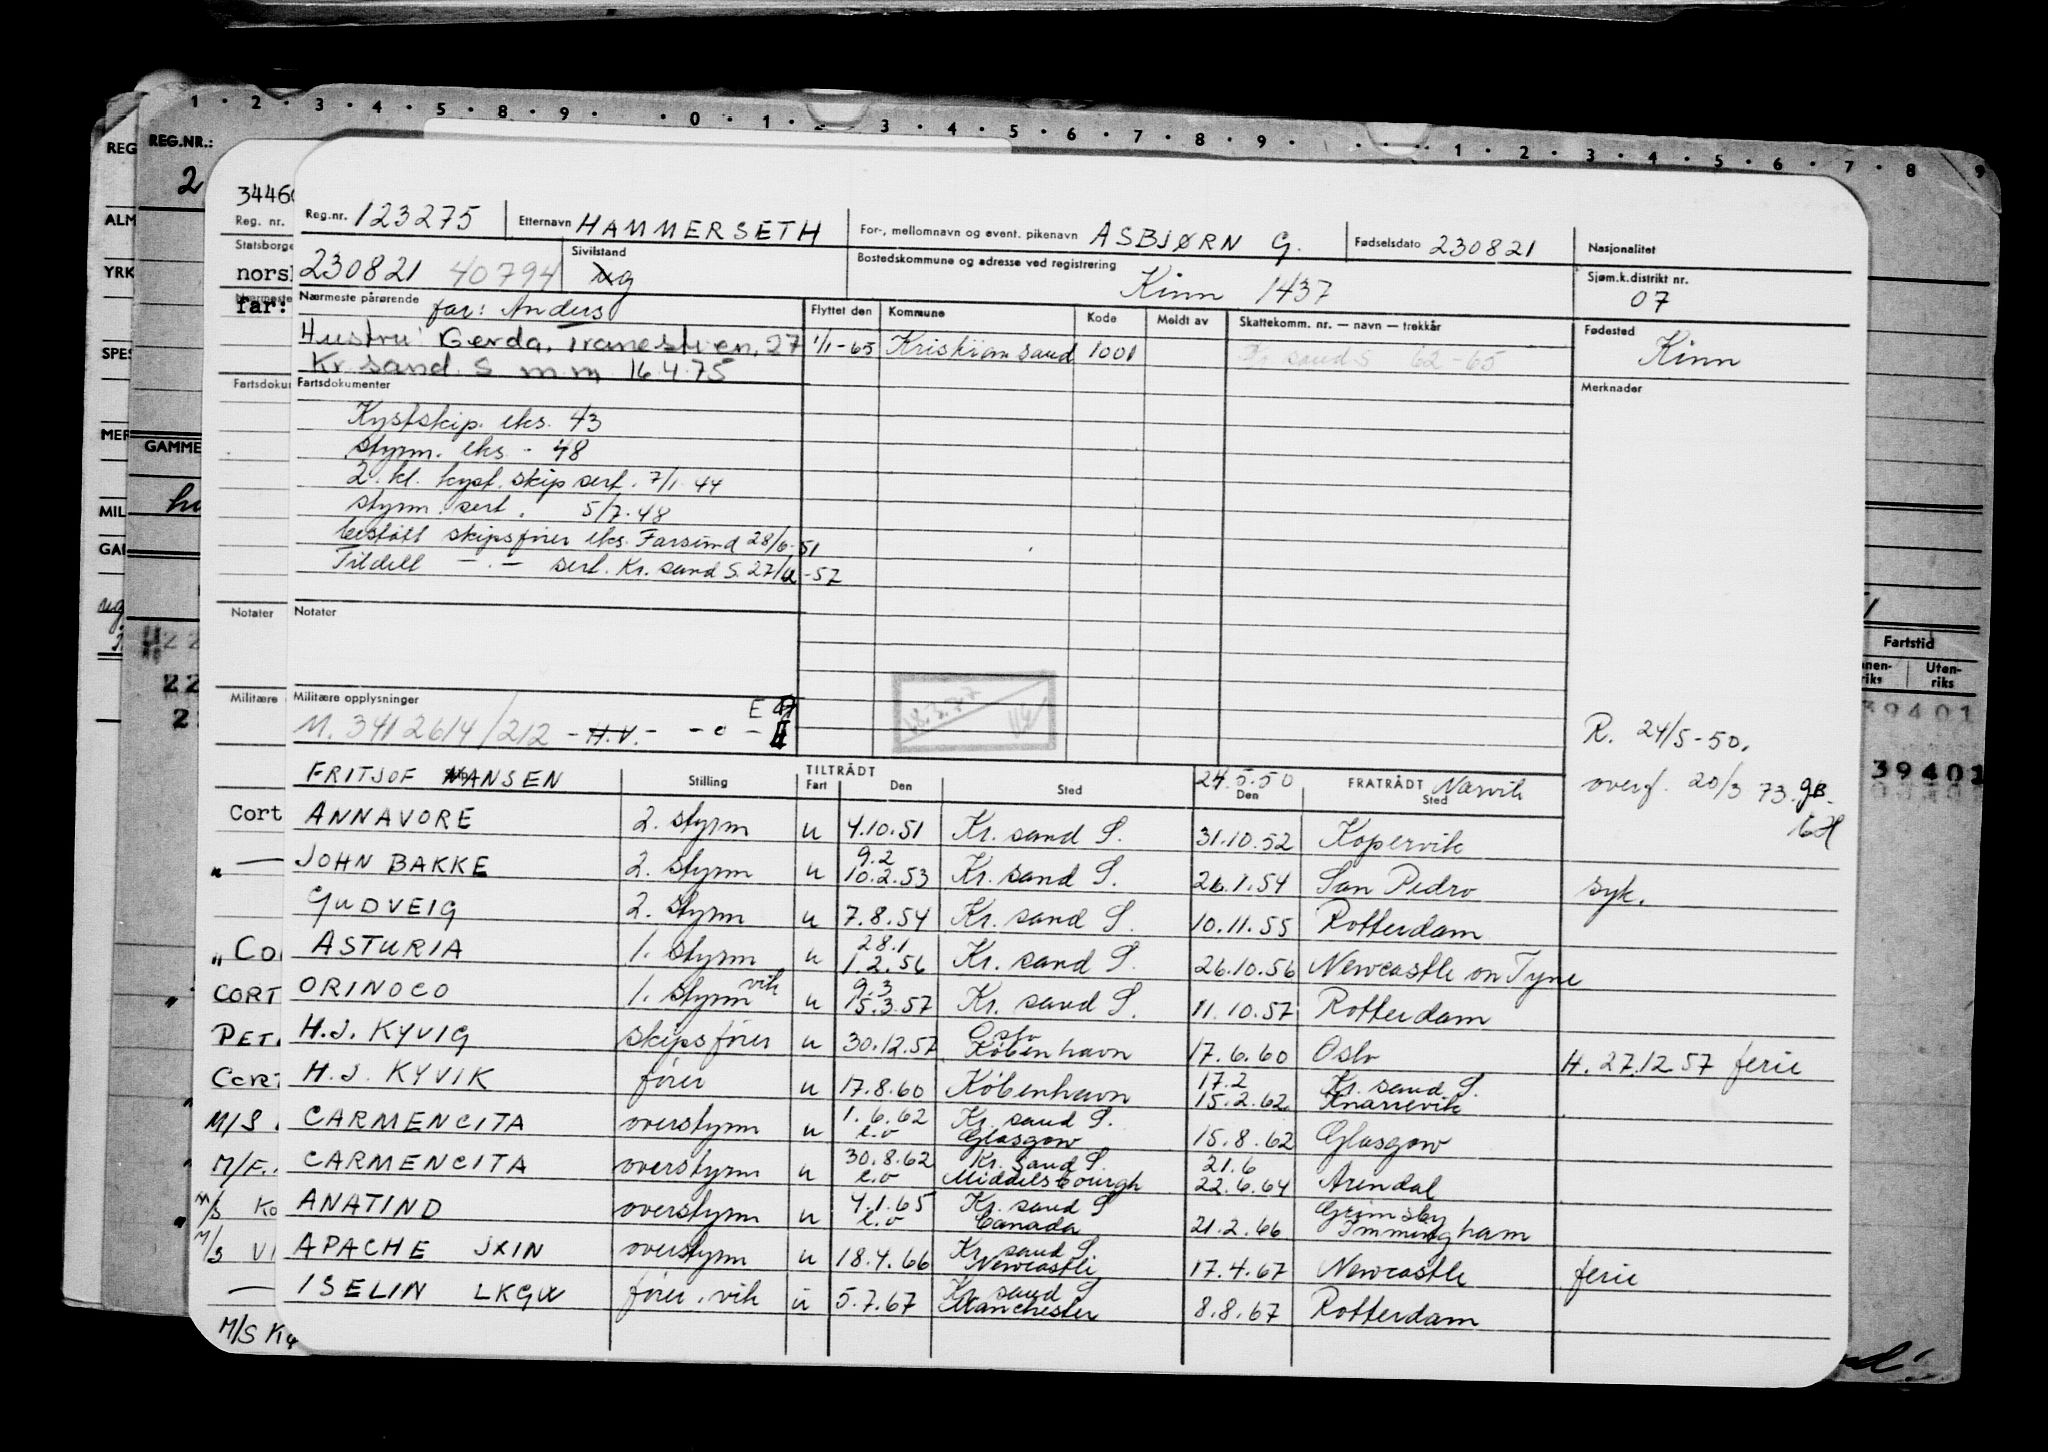 1 · 2 · 3 · 4 · 5 · 8 · 9 · · 0 · 1 · 2 · 3 · 4 · 5 · 6 · 7 · 8 · 9 · · · · · 1 · 2 · 3 · 4 · 5 · 6 · 7 · 8 · 9
REG REG.NR.:
2
34460
Reg. nr. Reg.nr. 123275 Etternavn HAMMERSETH For-, mellomnavn og event. pikenavn ASBJØRN G. Fødselsdato 230821 Nasjonalitet
ALM Statsborge 230821 40794 Sivilstand ug Bostedskommune og adresse ved registrering Kinn 1437 Sjøm.k.distrikt nr. 07
YRK norsk
far: Nærmeste pårørende far: Anders Flyttet den Kommune Kode Meldt av Skattekomm. nr. — navn — trekkår Fødested Kinn
Hustru: Gerda, Tranestien, 27 1/1-65 Kristiansand 1001 Kr sand S 62-65
SPES Kr. sand. S m.m 16.4.75
Fartsdoku Fartsdokumenter Merknader
Kystskip. eks. 43
MER GAMME styrm. eks - 48
2. kl. kyst. skip sert. 7/1 44
MIL styrm. sert. 5/7.48
GAI bestått skipsfører eks. Farsund 28/6-51
Tildelt — . — sert. Kr. sand S. 27/12-57
Notater Notater
Fartstid
nnen-riks Uten-riks
Militære Militære opplysninger
39401
M. 3412614/212 - H.V. -
R. 24/5-50.
39401
FRITJOF NANSEN Stilling TILTRÅDT Fart Den Sted 24.5.50 Den FRATRÅDT Narvik Sted overf. 20/3 73. gB.
Cort ANNAVORE 2. styrm u 4.10.51 Kr. sand S. 31.10.52 Kopervik
" — JOHN BAKKE 2. styrm u 9.2 10.2.53 Kr. sand S. 26.1.54 San Pedro syk.
GUDVEIG 2. styrm u 7.8.54 Kr. sand S. 10.11.55 Rotterdam
" Co ASTURIA 1. styrm u 28.1 1.2.56 Kr. sand S. 26.10.56 Newcastle on Tyne
CORT ORINOCO 1. styrm vik u 9.3 15.3.57 Kr. sand S. 11.10.57 Rotterdam
PET H.J. KYVIG skipsfører u 30.12.57 Oslo København 17.6.60 Oslo H. 27.12.57 ferie
CORT H.J. KYVIK fører u 17.8.60 København 17.2 15.2.62 Kr. sand S. Knarrevik
M/S CARMENCITA overstyrm u 1.6.62 e.o Kr. sand S. Glasgow 15.8.62 Glasgow
M/F. CARMENCITA overstyrm u 30.8.62 e.o Kr. sand S. Middelsbourgh 21.6 22.6.64 Arendal
M/S Ko ANATIND overstyrm u 4.1.65 e.o Kr. sand S Canada 21.2.66 Grimsby Immingham
M/S VI APACHE JXIN overstyrm u 18.4.66 Kr. sand S. Newcastle 17.4.67 Newcastle ferie
— ISELIN LKGW fører. vik u 5.7.67 Kr. sand S Manchester 8.8.67 Rotterdam
M/S